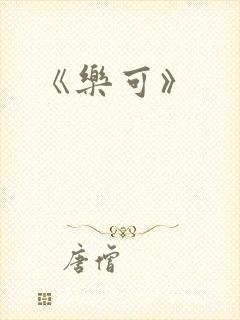 《樂可》
唐僧